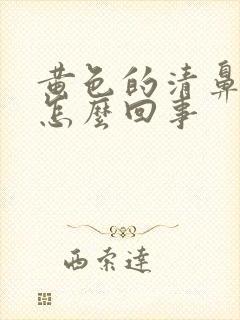 黄色的清鼻
怎麼回事
西索達